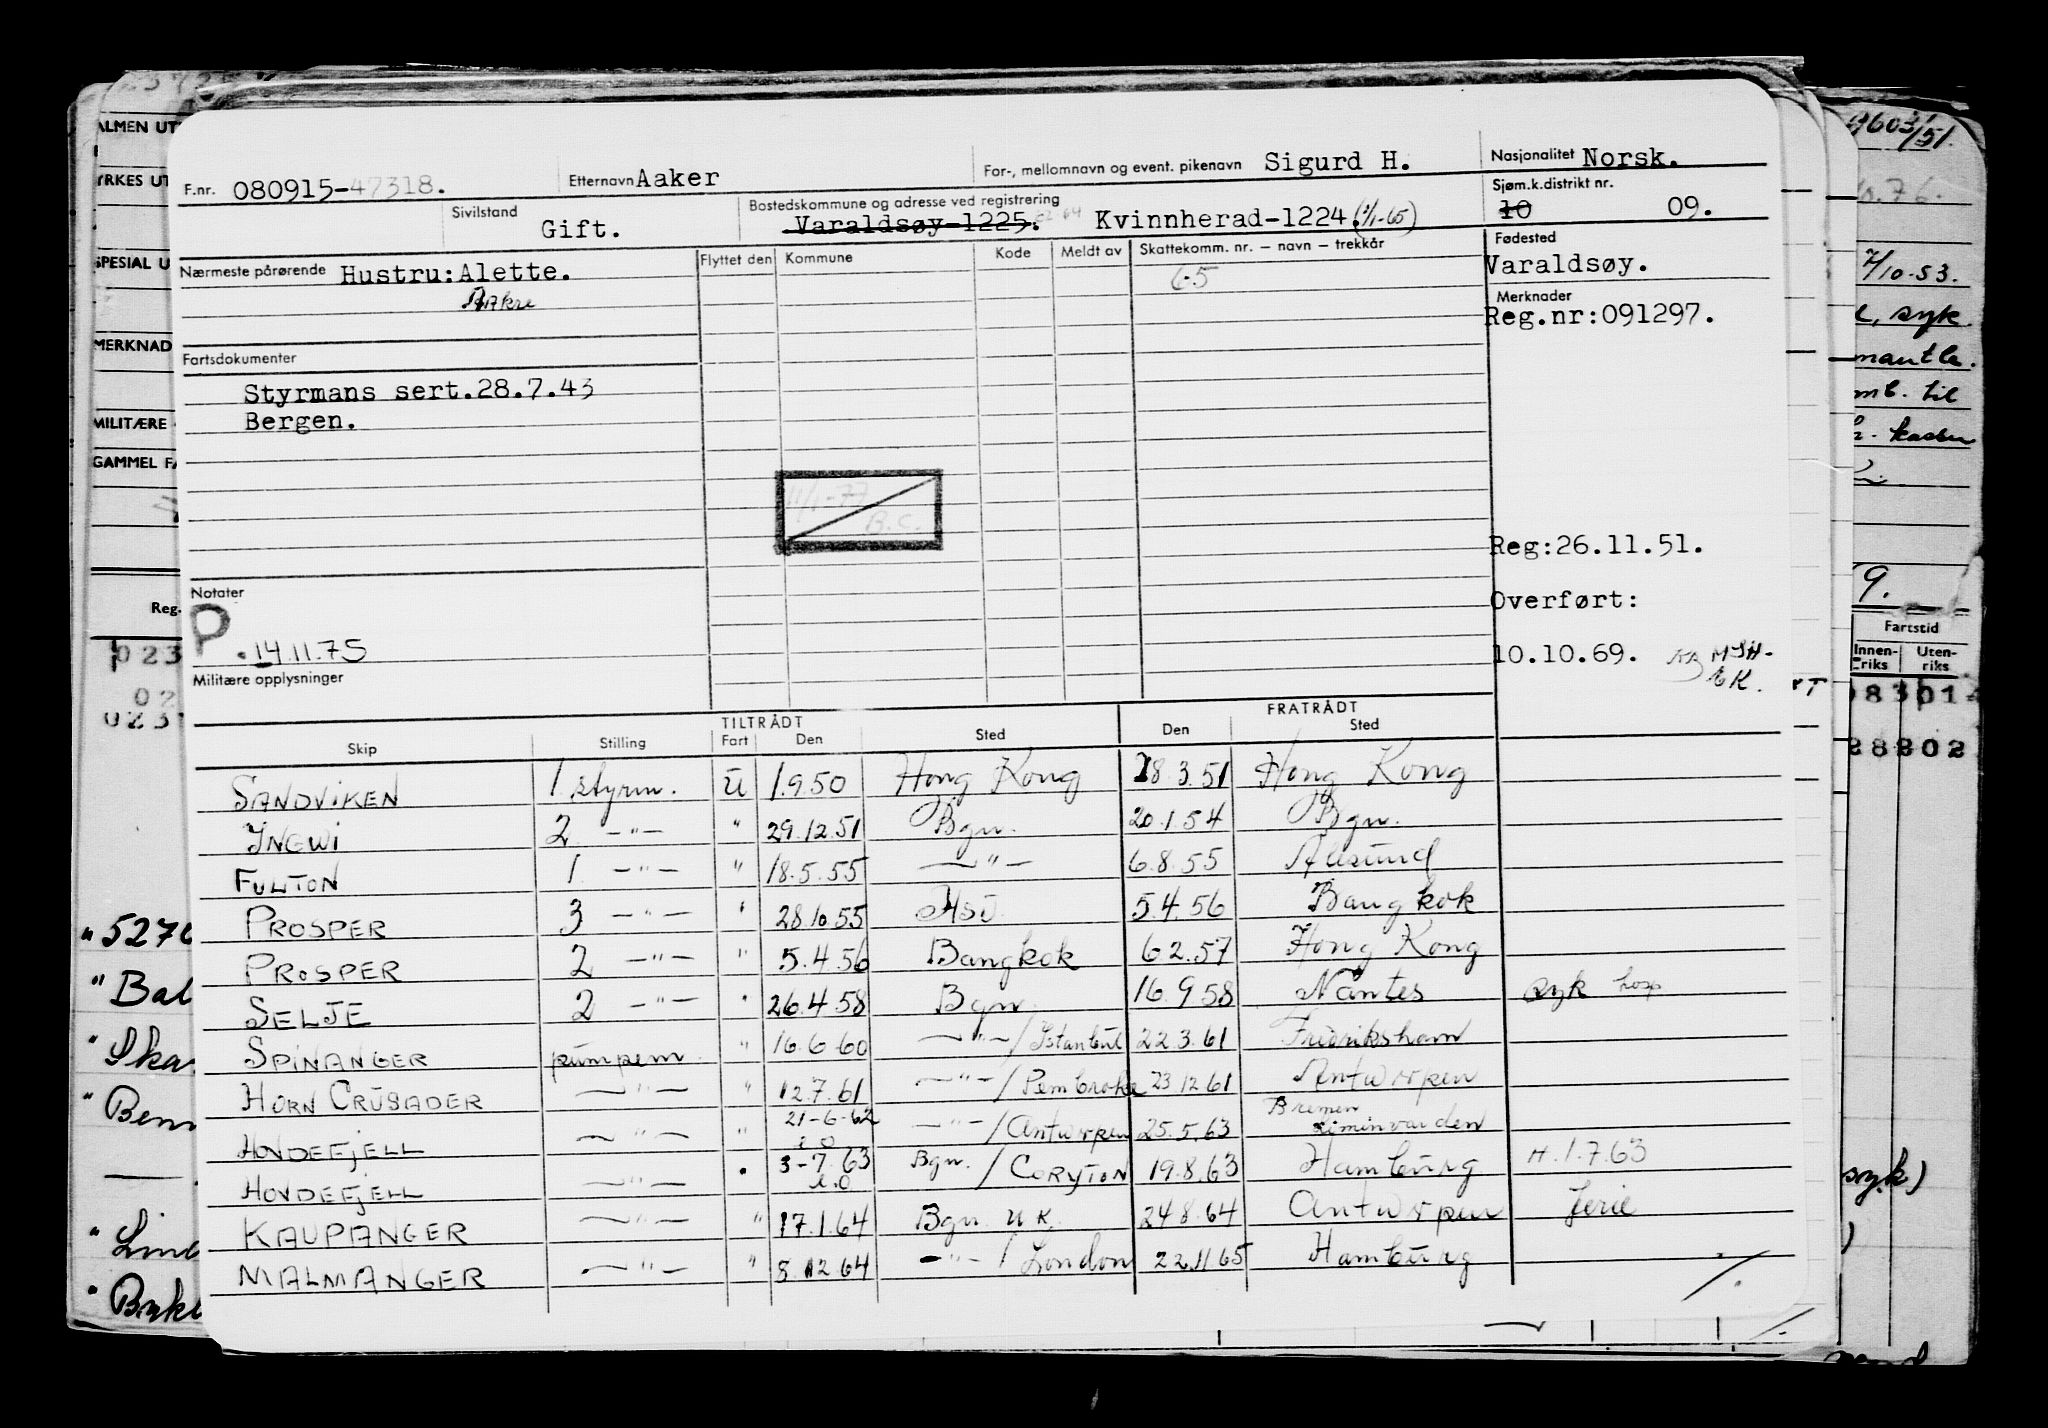 F.nr. 080915-47318. Etternavn Aaker For-, mellomnavn og event. pikenavn Sigurd H. Nasjonalitet Norsk.
Sivilstand Gift. Bostedskommune og adresse ved registrering Varaldsøy-1225. Kvinnherad-1224. (1/1-65) Sjøm.k.distrikt nr. 10 09.
Nærmeste pårørende Hustru:Alette. Flyttet den Kommune Kode Meldt av Skattekomm. nr. – navn – trekkår Fødested
65 Varaldsøy.
Merknader
Reg.nr:091297.
Fartsdokumenter
Styrmans sert.28.7.43
Bergen.
11/1-77
B.C.
Reg:26.11.51.
Notater
Overført:
P. 14.11.75
10.10.69.
Militære opplysninger
TILTRÅDT FRATRÅDT
Skip Stilling Fart Den Sted Den Sted
SANDVIKEN 1. styrm. U 1.9.50 Hong Kong 28.3.51 Hong Kong
INGWI 2 —"— " 29.12.51 Bgn. 20.1.54 Bgn.
FULTON 1 —"— " 18.5.55 —"— 6.8.55 Ålesund
PROSPER 3 —"— " 28.10.55 5.4.56 Bangkok
PROSPER 2 —"— " 5.4.56 Bangkok 6.2.57 Hong Kong
SELJE 2 —"— " 26.4.58 Bgn. 16.9.58 Nantes syk hosp
SPINANGER pumpem. " 16.6.60 —"—/Istanbul 22.3.61 Fredrikshamn
HORN CRUSADER —"— " 12.7.61 —"—/Pembroke 23.12.61 Antwerpen
HOVDEFJELL —"— " 21-6-62 —"—/Antwerpen 25.5.63 Bremen
HOVDEFJELL —"— " 3-7.63 Bgn./CORYTON 19.8.63 Hamburg H.1.7.63
KAUPANGER —"— " 17.1.64 Bgn. UK. 24.8.64 Antwerpen ferie
MALMANGER —"— " 8.12.64 —"—/London 22.11.65 Hamburg
ALMEN UT
YRKES UT
SPESIAL U
MERKNAD
MILITÆRE
GAMMEL FA
Reg.
023
02
023
" 5270
" Bal
" Ska
" Benn
9603/51.
10.76.
7/10-53.
syk.
til
9.
Fartstid
Innen-riks Uten-riks
syk)